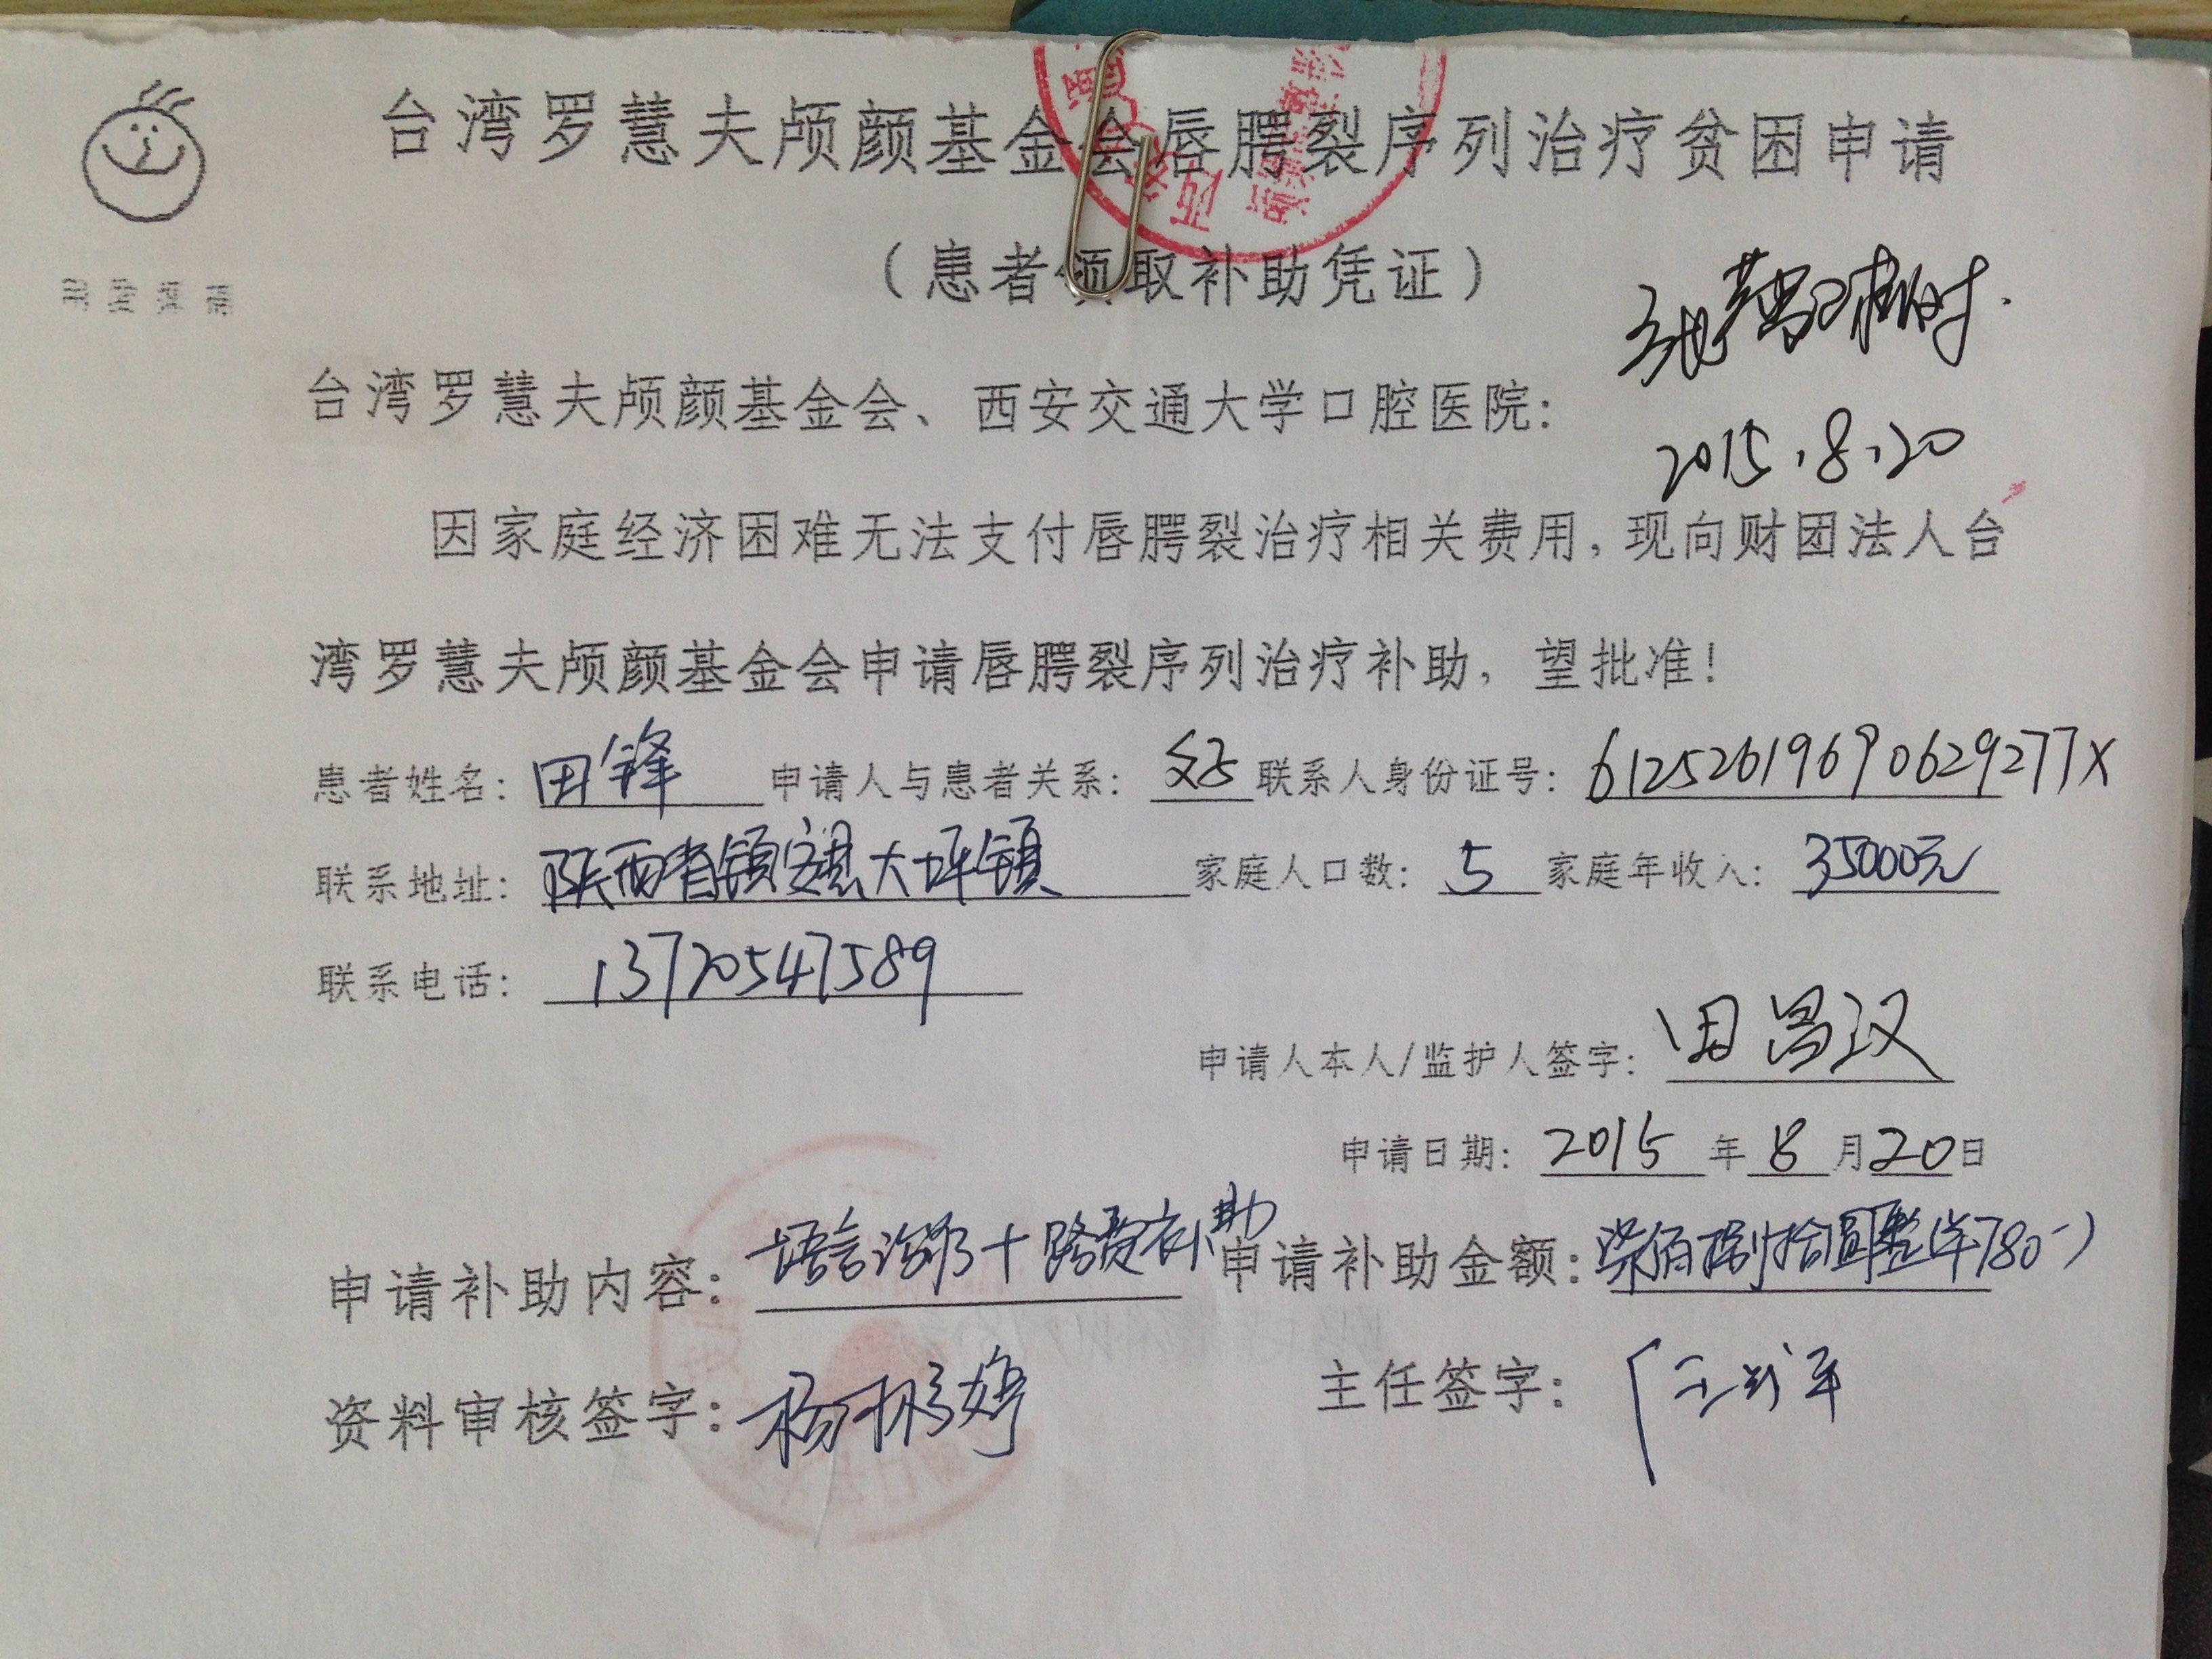 台湾罗慧夫颅颜基金会唇腭裂序列治疗贫困申请
（患者领取补助凭证）
2015.8.20
台湾罗慧夫颅颜基金会、西安交通大学口腔医院：
因家庭经济困难无法支付唇腭裂治疗相关费用，现向财团法人台
湾罗慧夫颅颜基金会申请唇腭裂序列治疗补助，望批准！
患者姓名：田锋 申请人与患者关系：父子 联系人身份证号：61252619690629277X
联系地址：陕西省镇安县大坪镇 家庭人口数：5 家庭年收入：35000元
联系电话：13720547589
申请人本人/监护人签字：田昌汉
申请日期：2015年8月20日
申请补助内容：语言治疗+路费补助 申请补助金额：柒佰捌拾圆整(¥780-)
资料审核签字：杨彤婷 主任签字：